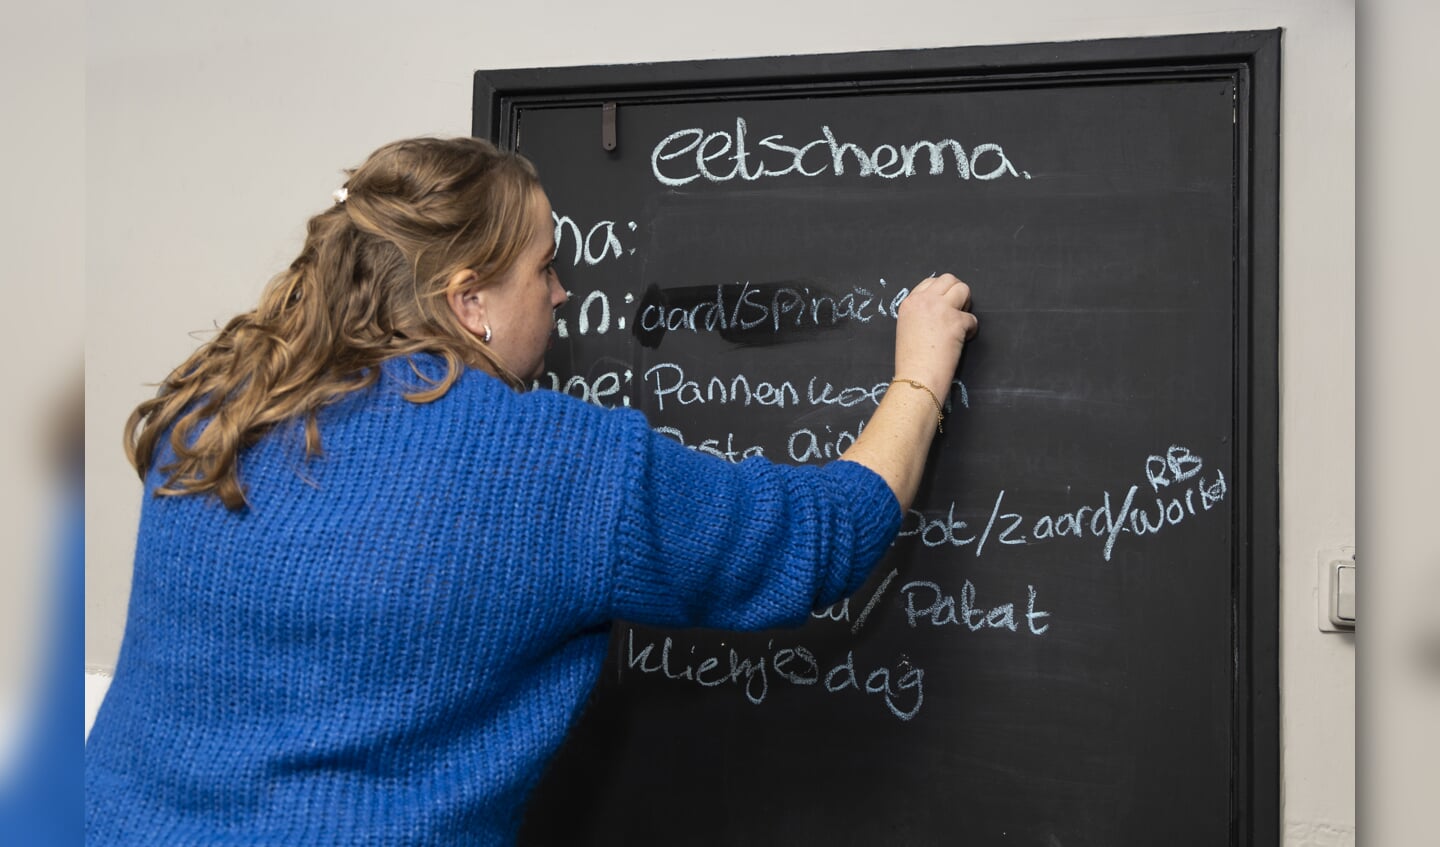 eetschema.
ma:
in: aard/spinazie
woe: Pannenkoeken
Pasta
RB
Pot/zaard/worst
/Patat
kliekjesdag